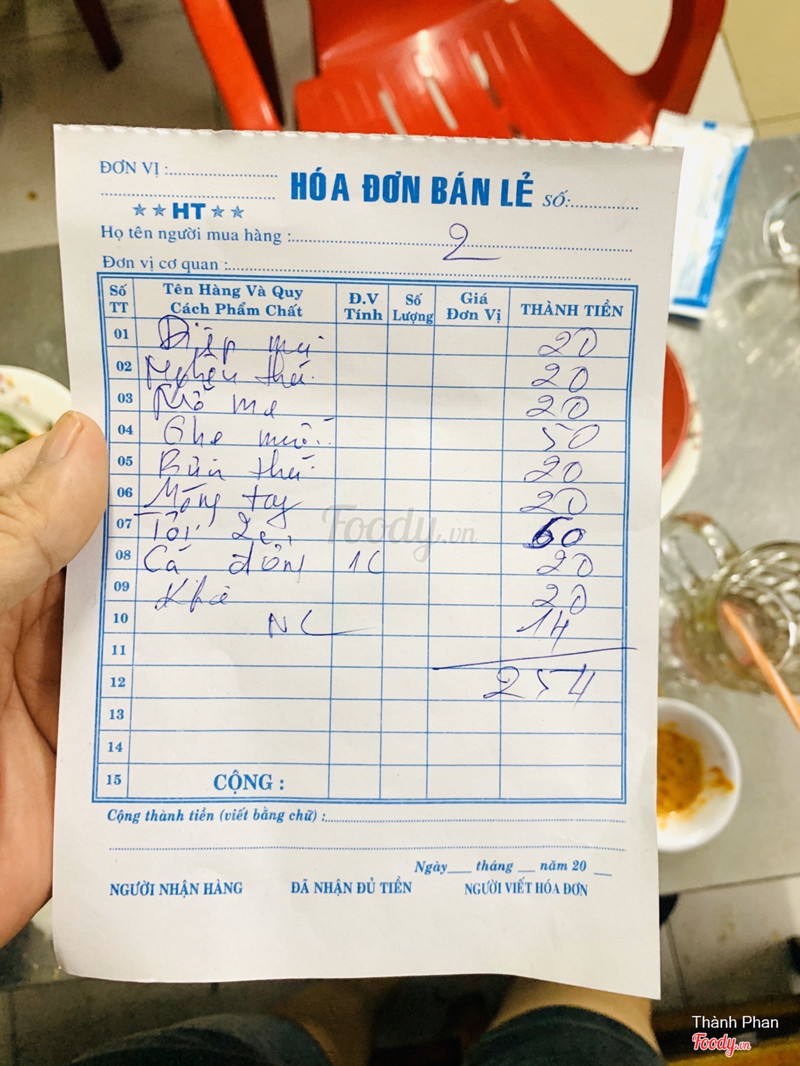 ĐƠN VỊ :
HÓA ĐƠN BÁN LẺ SỐ:
★★HT★★
Họ tên người mua hàng : 2
Đơn vị cơ quan :
Số TT Tên Hàng Và Quy Cách Phẩm Chất Đ.V Tính Số Lượng Giá Đơn Vị THÀNH TIỀN
01 Điệp 20
02 Nghêu thái 20
03 me 20
04 Ghẹ muối 50
05 thái 20
06 Móng tay 20
07 Tỏi 60
08 Cá đông 1C 20
09 Khô 20
10 NL 14
11
12 254
13
14
15 CỘNG :
Cộng thành tiền (viết bằng chữ) :
Ngày___ tháng __ năm 20 __
NGƯỜI NHẬN HÀNG ĐÃ NHẬN ĐỦ TIỀN NGƯỜI VIẾT HÓA ĐƠN
Foody.vn
Thành Phan
Foody.vn